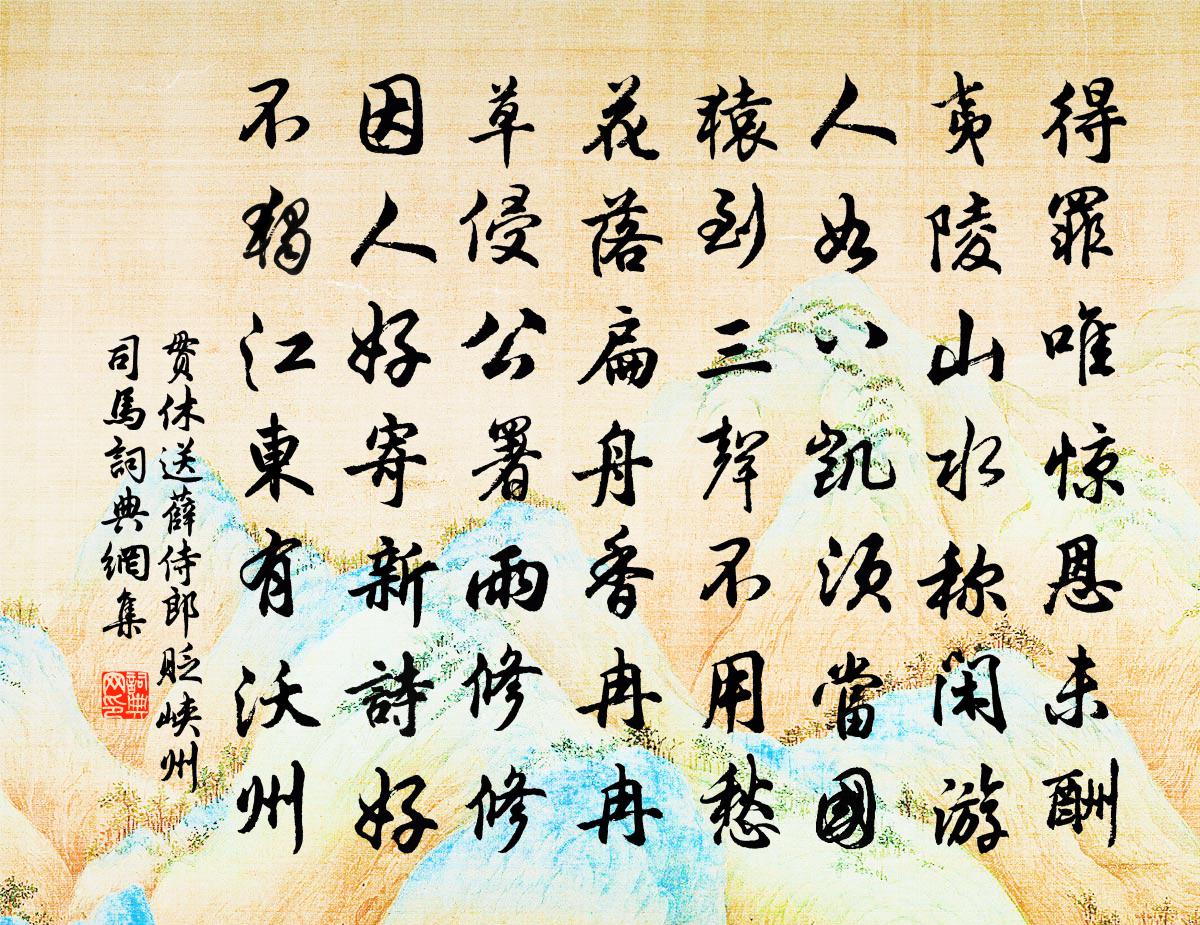 得罪唯惊恩未酬
夷陵山水称闲游
人如八凱須當國
猿到三聲不用愁
花落扁舟香冉冉
草侵公署雨修修
因人好寄新詩好
不獨江東有沃州
贯休送薛侍郎贬峡州
司馬詞典網集
詞典
网印